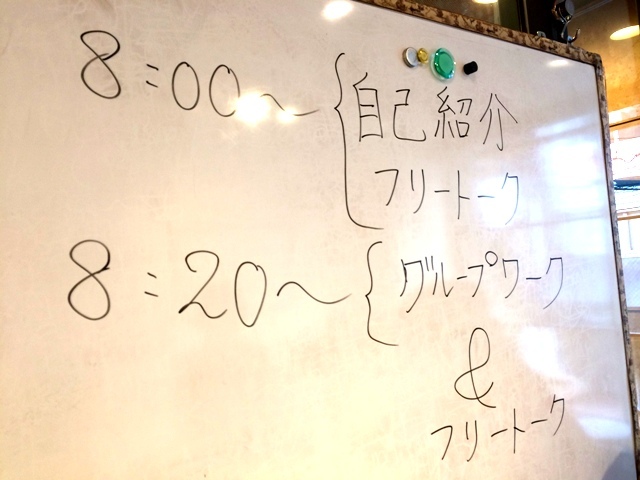 8:00〜 自己紹介
フリートーク
8:20〜 グループワーク
&
フリートーク